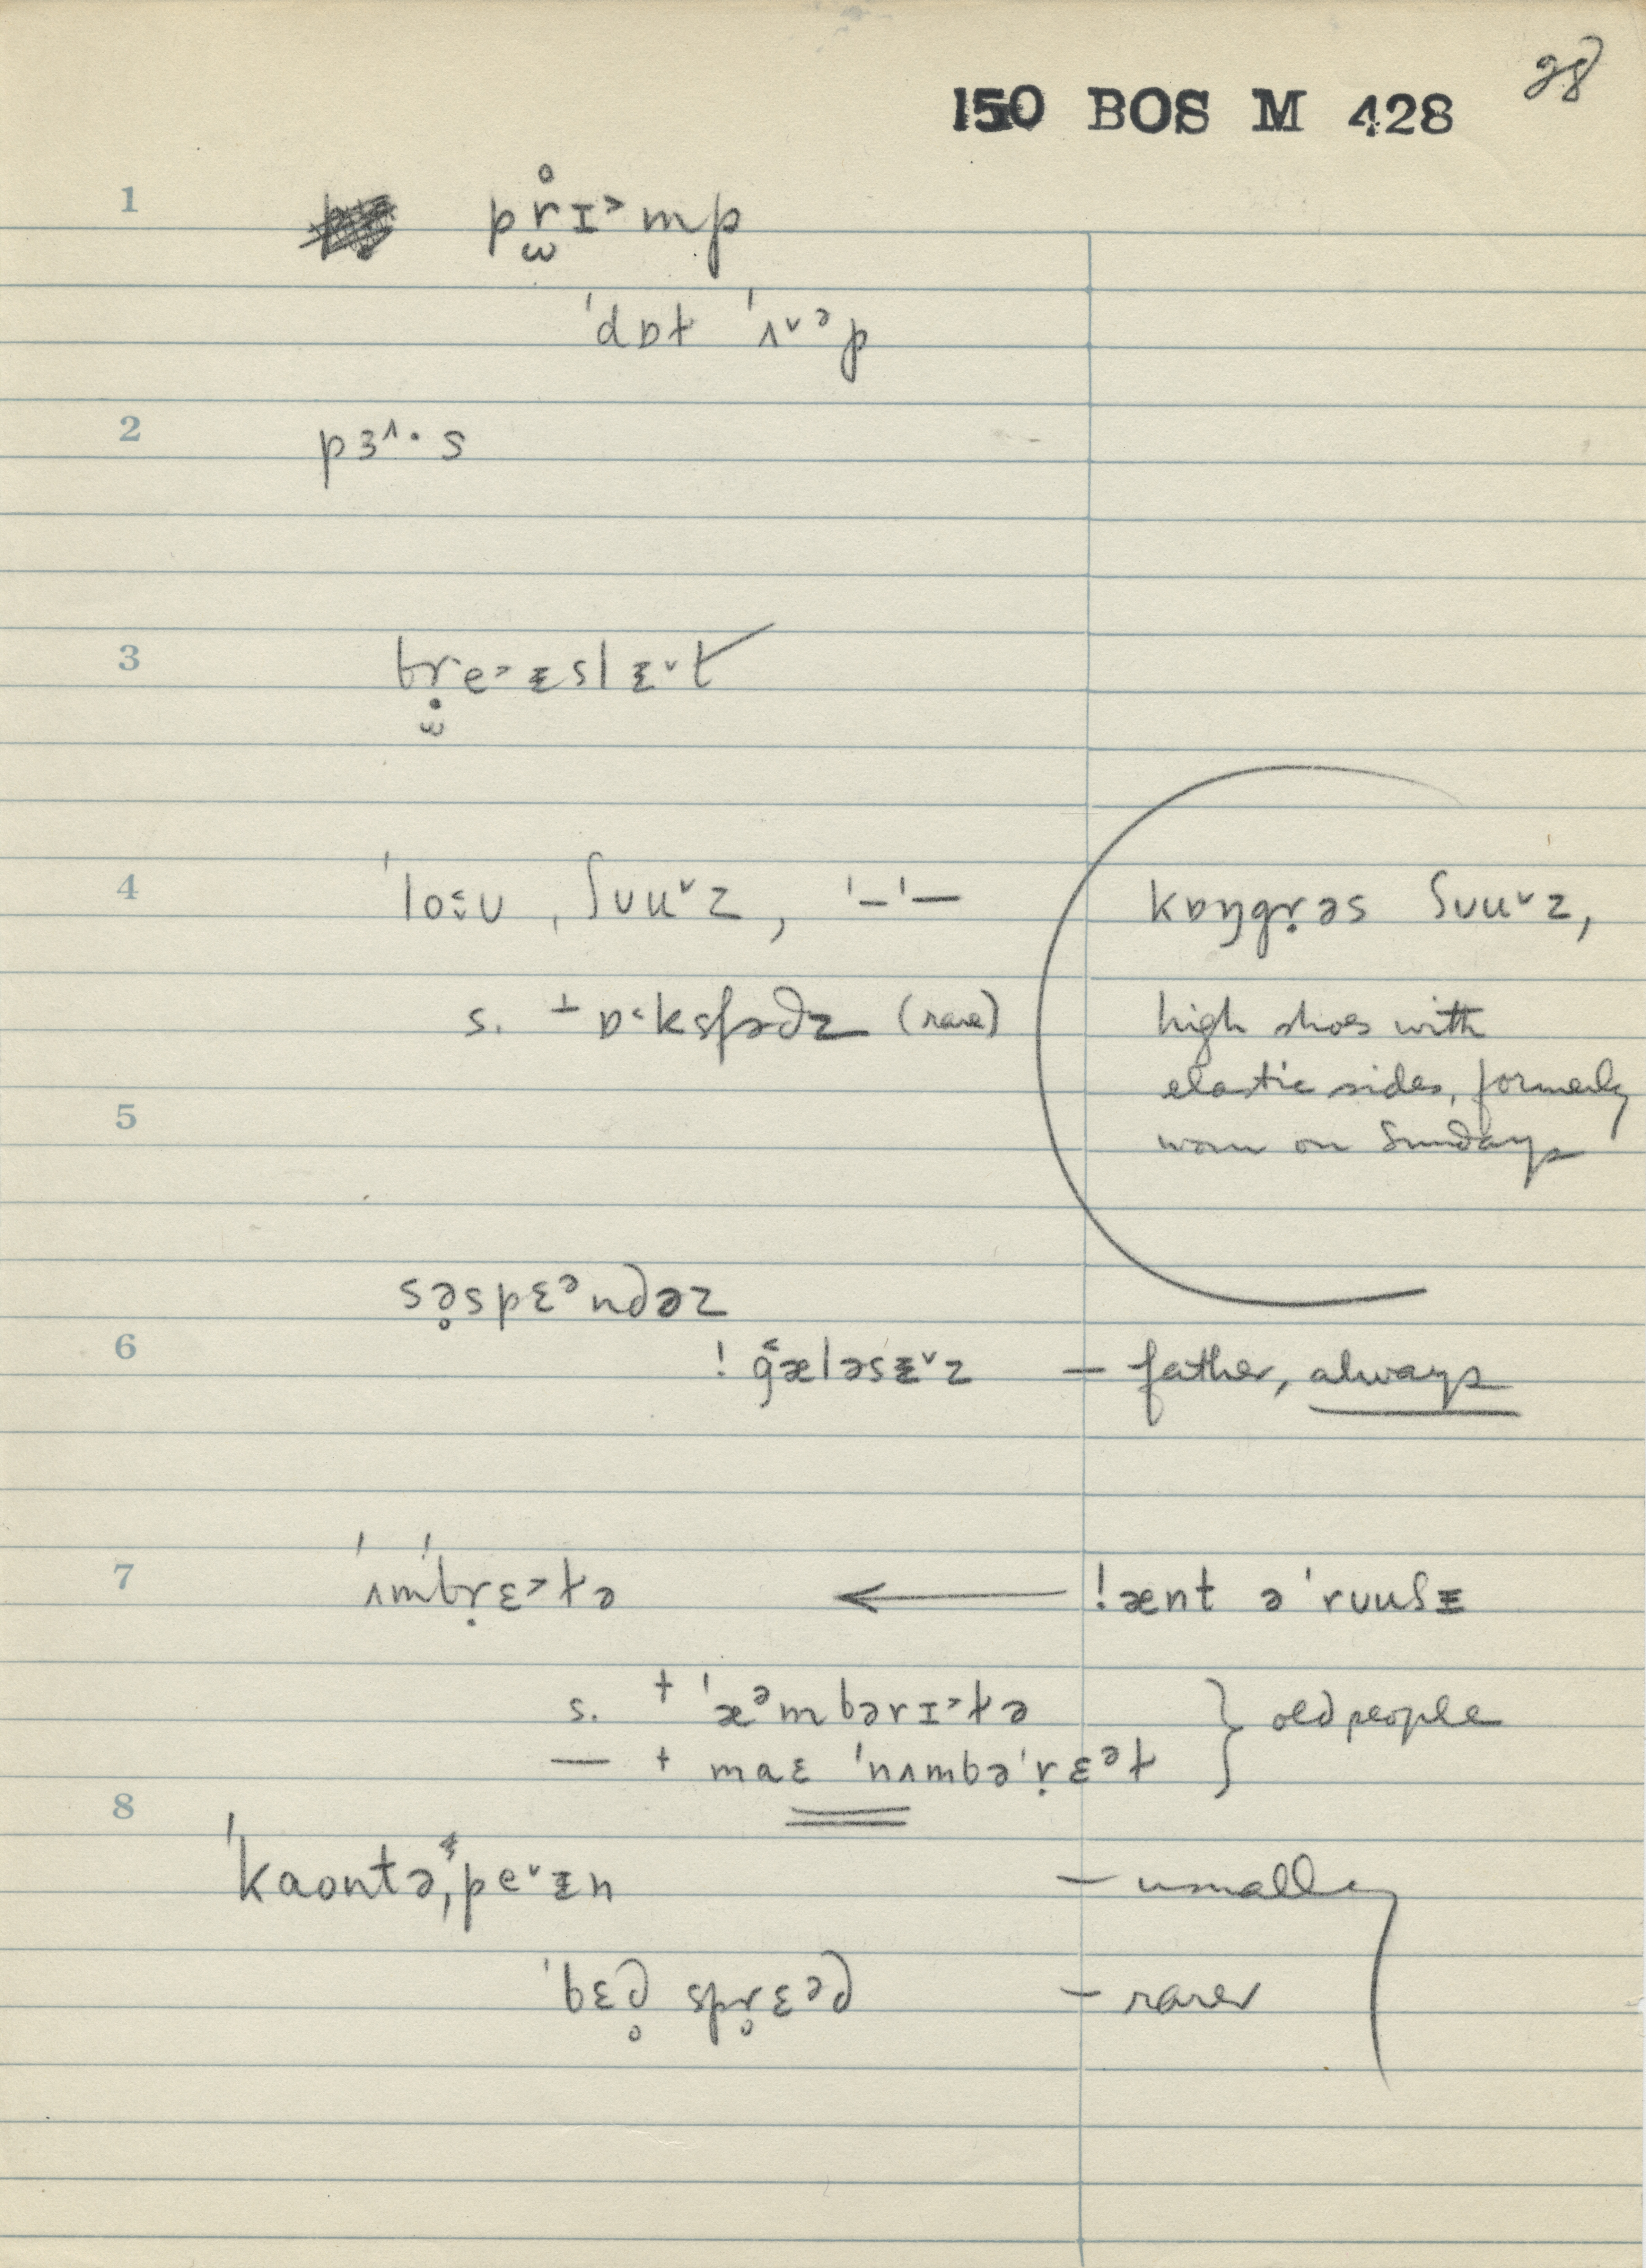 28
150 BOS M 428
1 pr̥ɪ˃mp
ˈdɒt ˈʌ˅ᵊp
2 pɜ˄·s
3 bṛe˃ɪslɪ˅t
4 ˈloʊ ˌʃʊu˅z, ˈ–ˈ–
kɒŋgṛəs ʃʊu˅z,
s. + ɒ˂ksfədz (rare)
high shoes with
elastic sides, formerly
worn on Sundays
5
səspɛᵊndəz
6 ! gæləsɪ˅z – father, always
7 ˈʌmˈbṛɛ˃tə ← !ænt əˈrʊuʃɪ
s. + ˈæᵊmbərɪ˃tə
— + maɛ ˈnʌmbəˈṛɛᵊt } old people
8
ˈkaontəˌpe˅ɪn – usually
ˈbɛd spr̥ɛᵊd – rarer